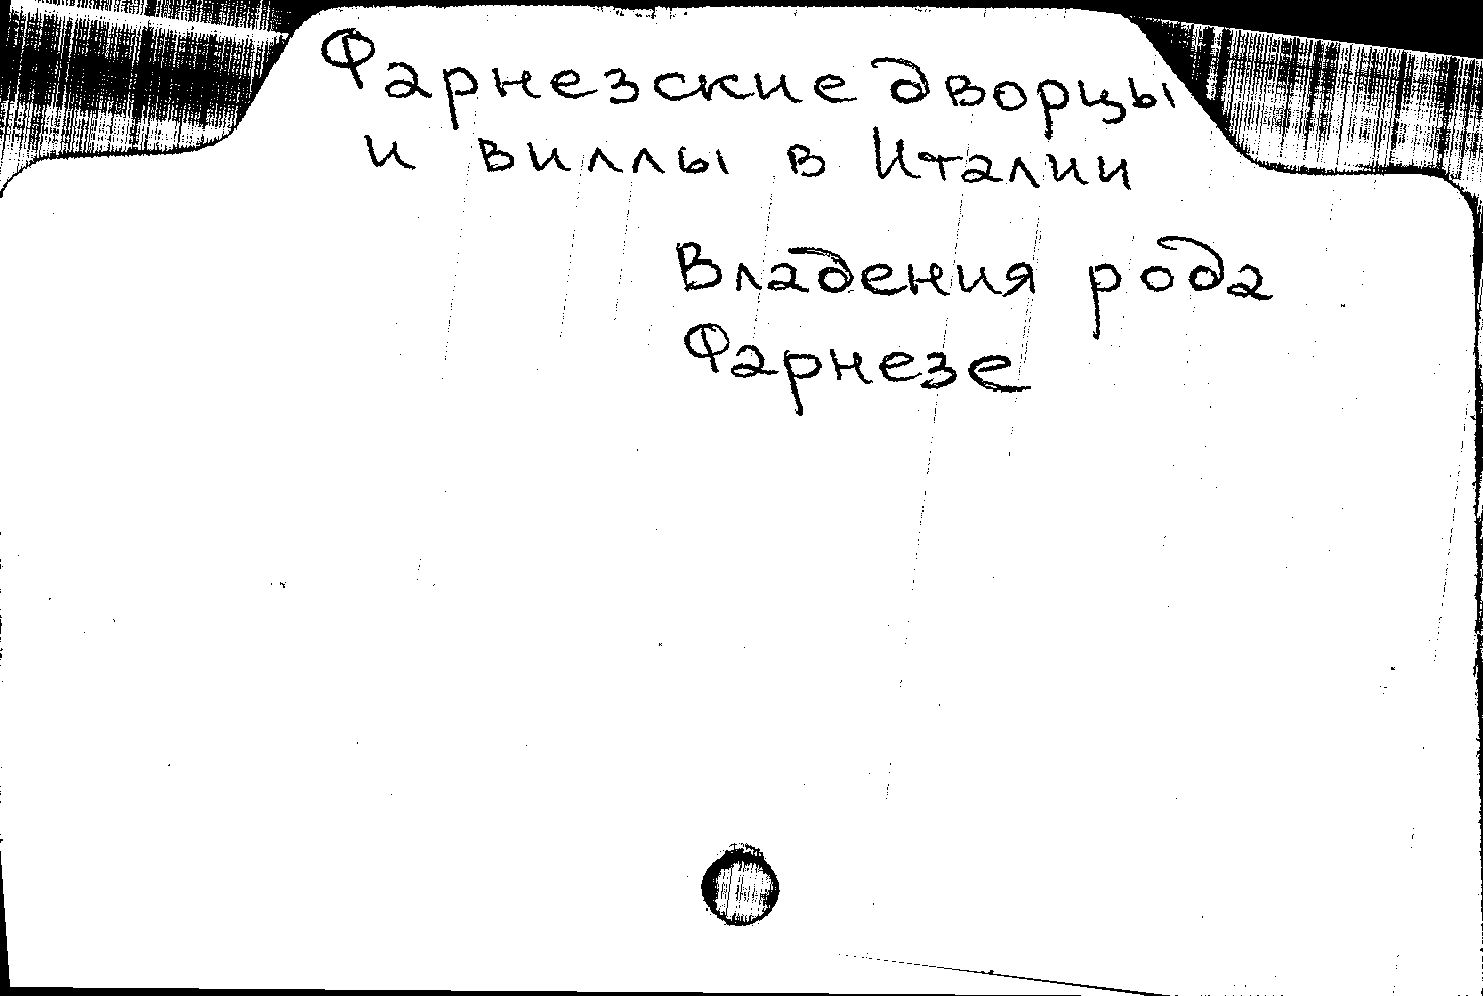 Фарнезские дворцы
и виллы в Италии
Владения рода
Фарнезе